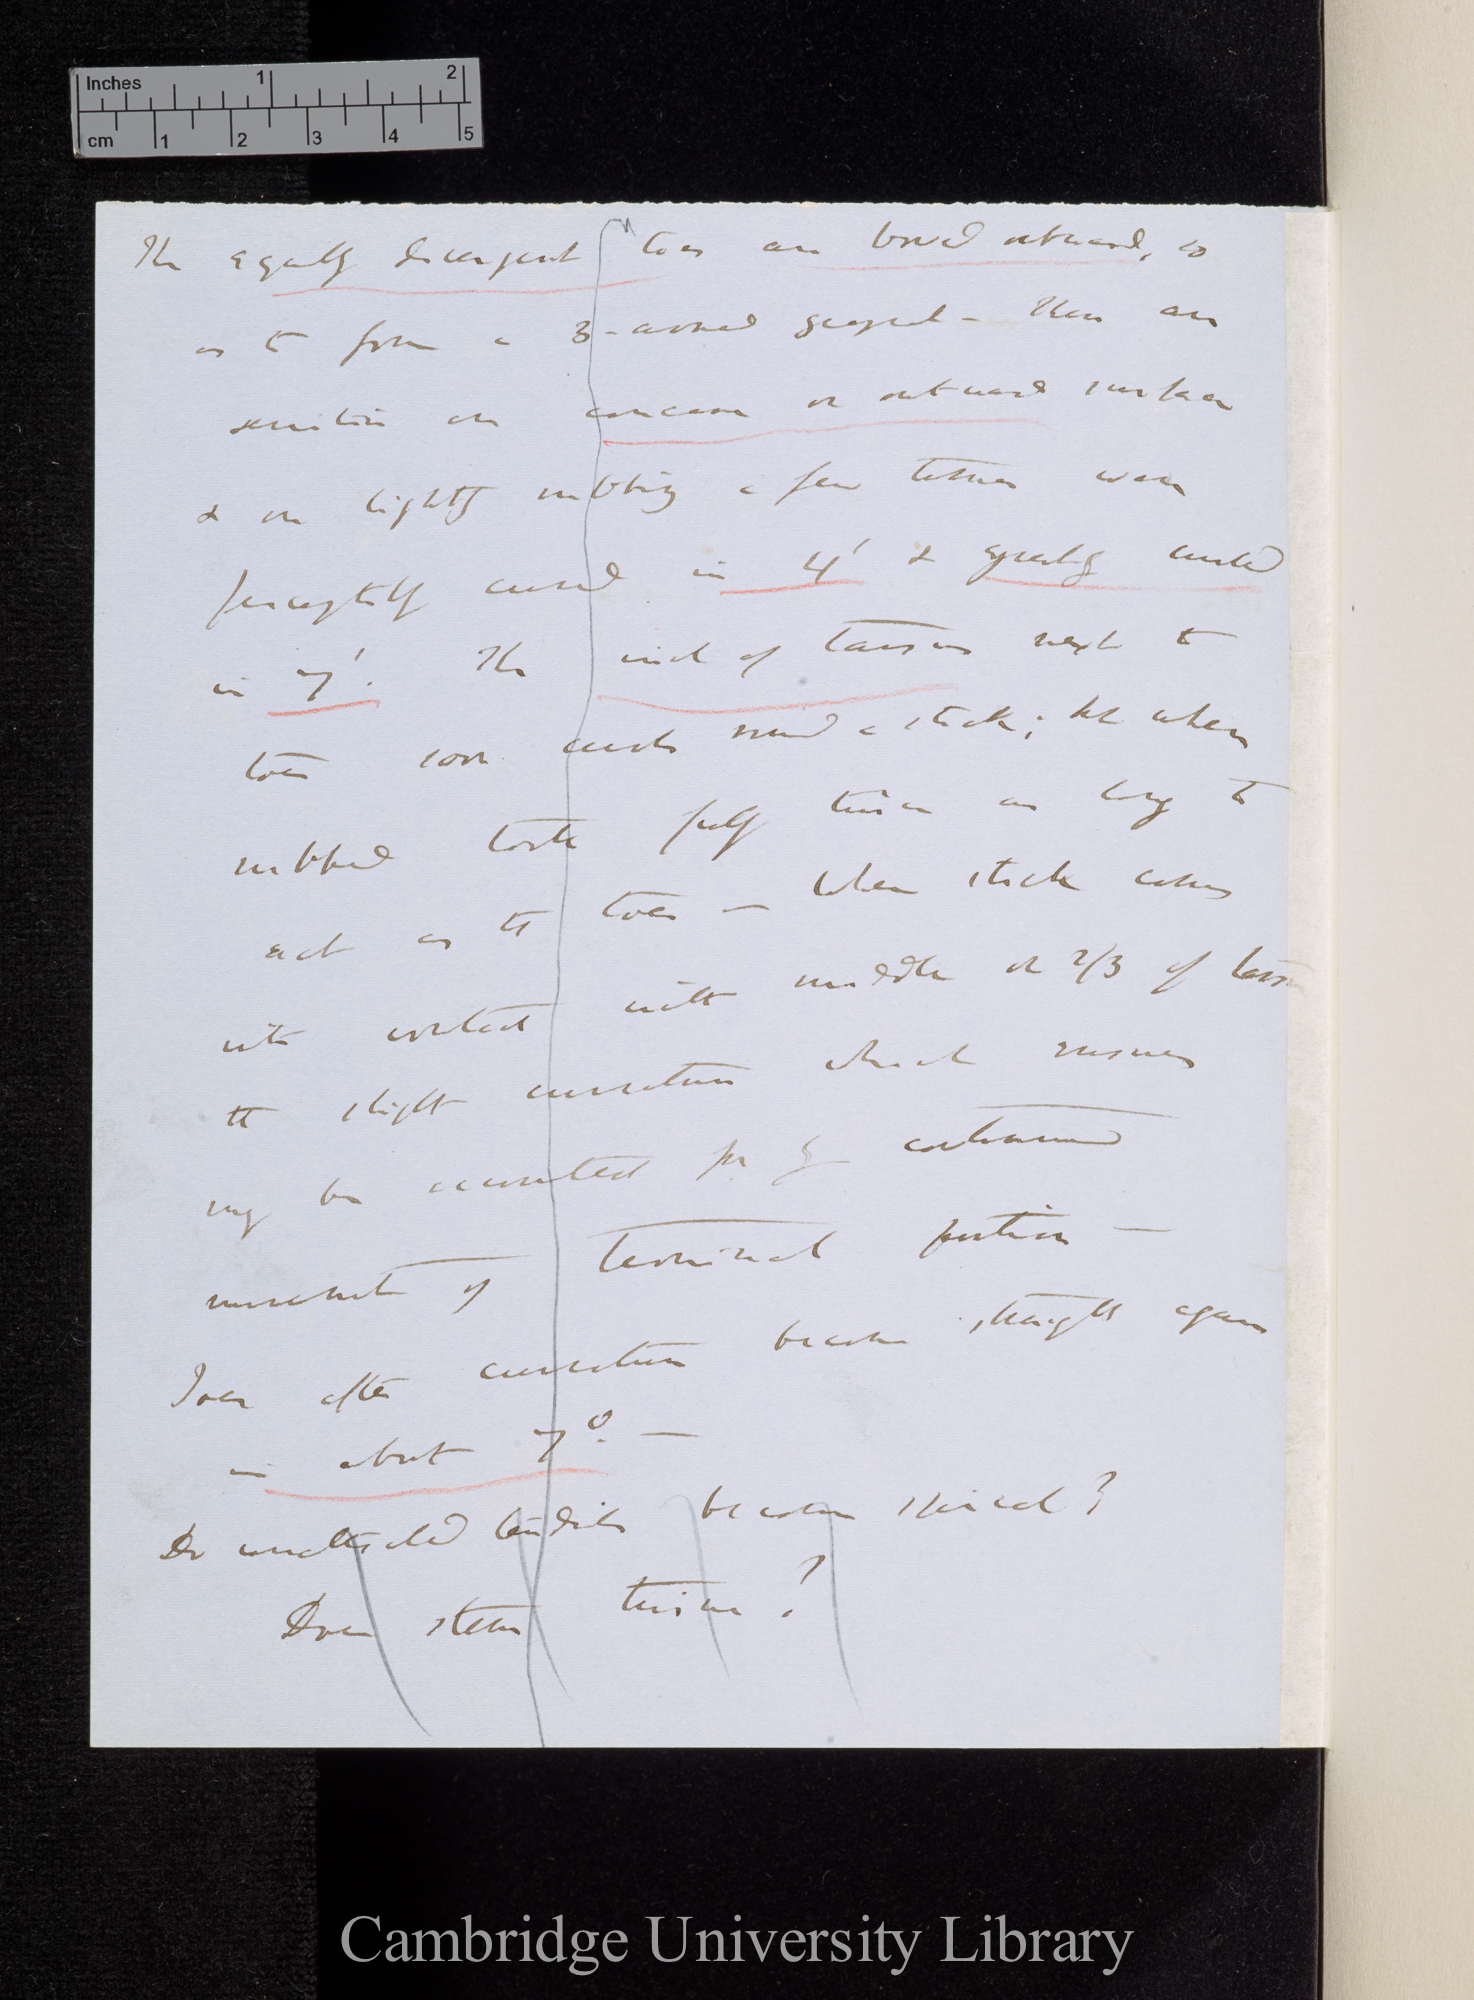 Inches 1 2
cm 1 2 3 4 5
The equally divergent toes are bowed outward, so
as to form a 3-armed grapnel – These are
sensitive on concave or outward surface
& on lightly rubbing a few times were
perceptibly curved in 4' & greatly curled
in 7'. The end of tarsus next to
toes soon curls round a stick; but when
rubbed took fully twice as long to
act as the toes — When stick comes
into contact with middle or 2/3 of tarsus
the slight curvature which ensues
may be accounted for by continued
movement of terminal portion —
Toes after curvature become straight again
in about 7°. —
Do unattached tendrils become spiral?
Does stem twine?
Cambridge University Library